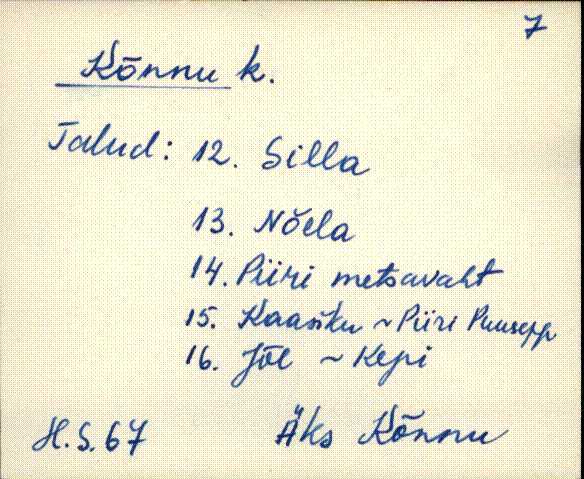 7
Kõnnu k.
Talud: 12. Silla
13. Nõela
14. Piiri metsavaht
15. Kaasiku ~ Piiri Puusepp
16. Jõe ~ Kepi
H.S. 67 Äks Kõnnu